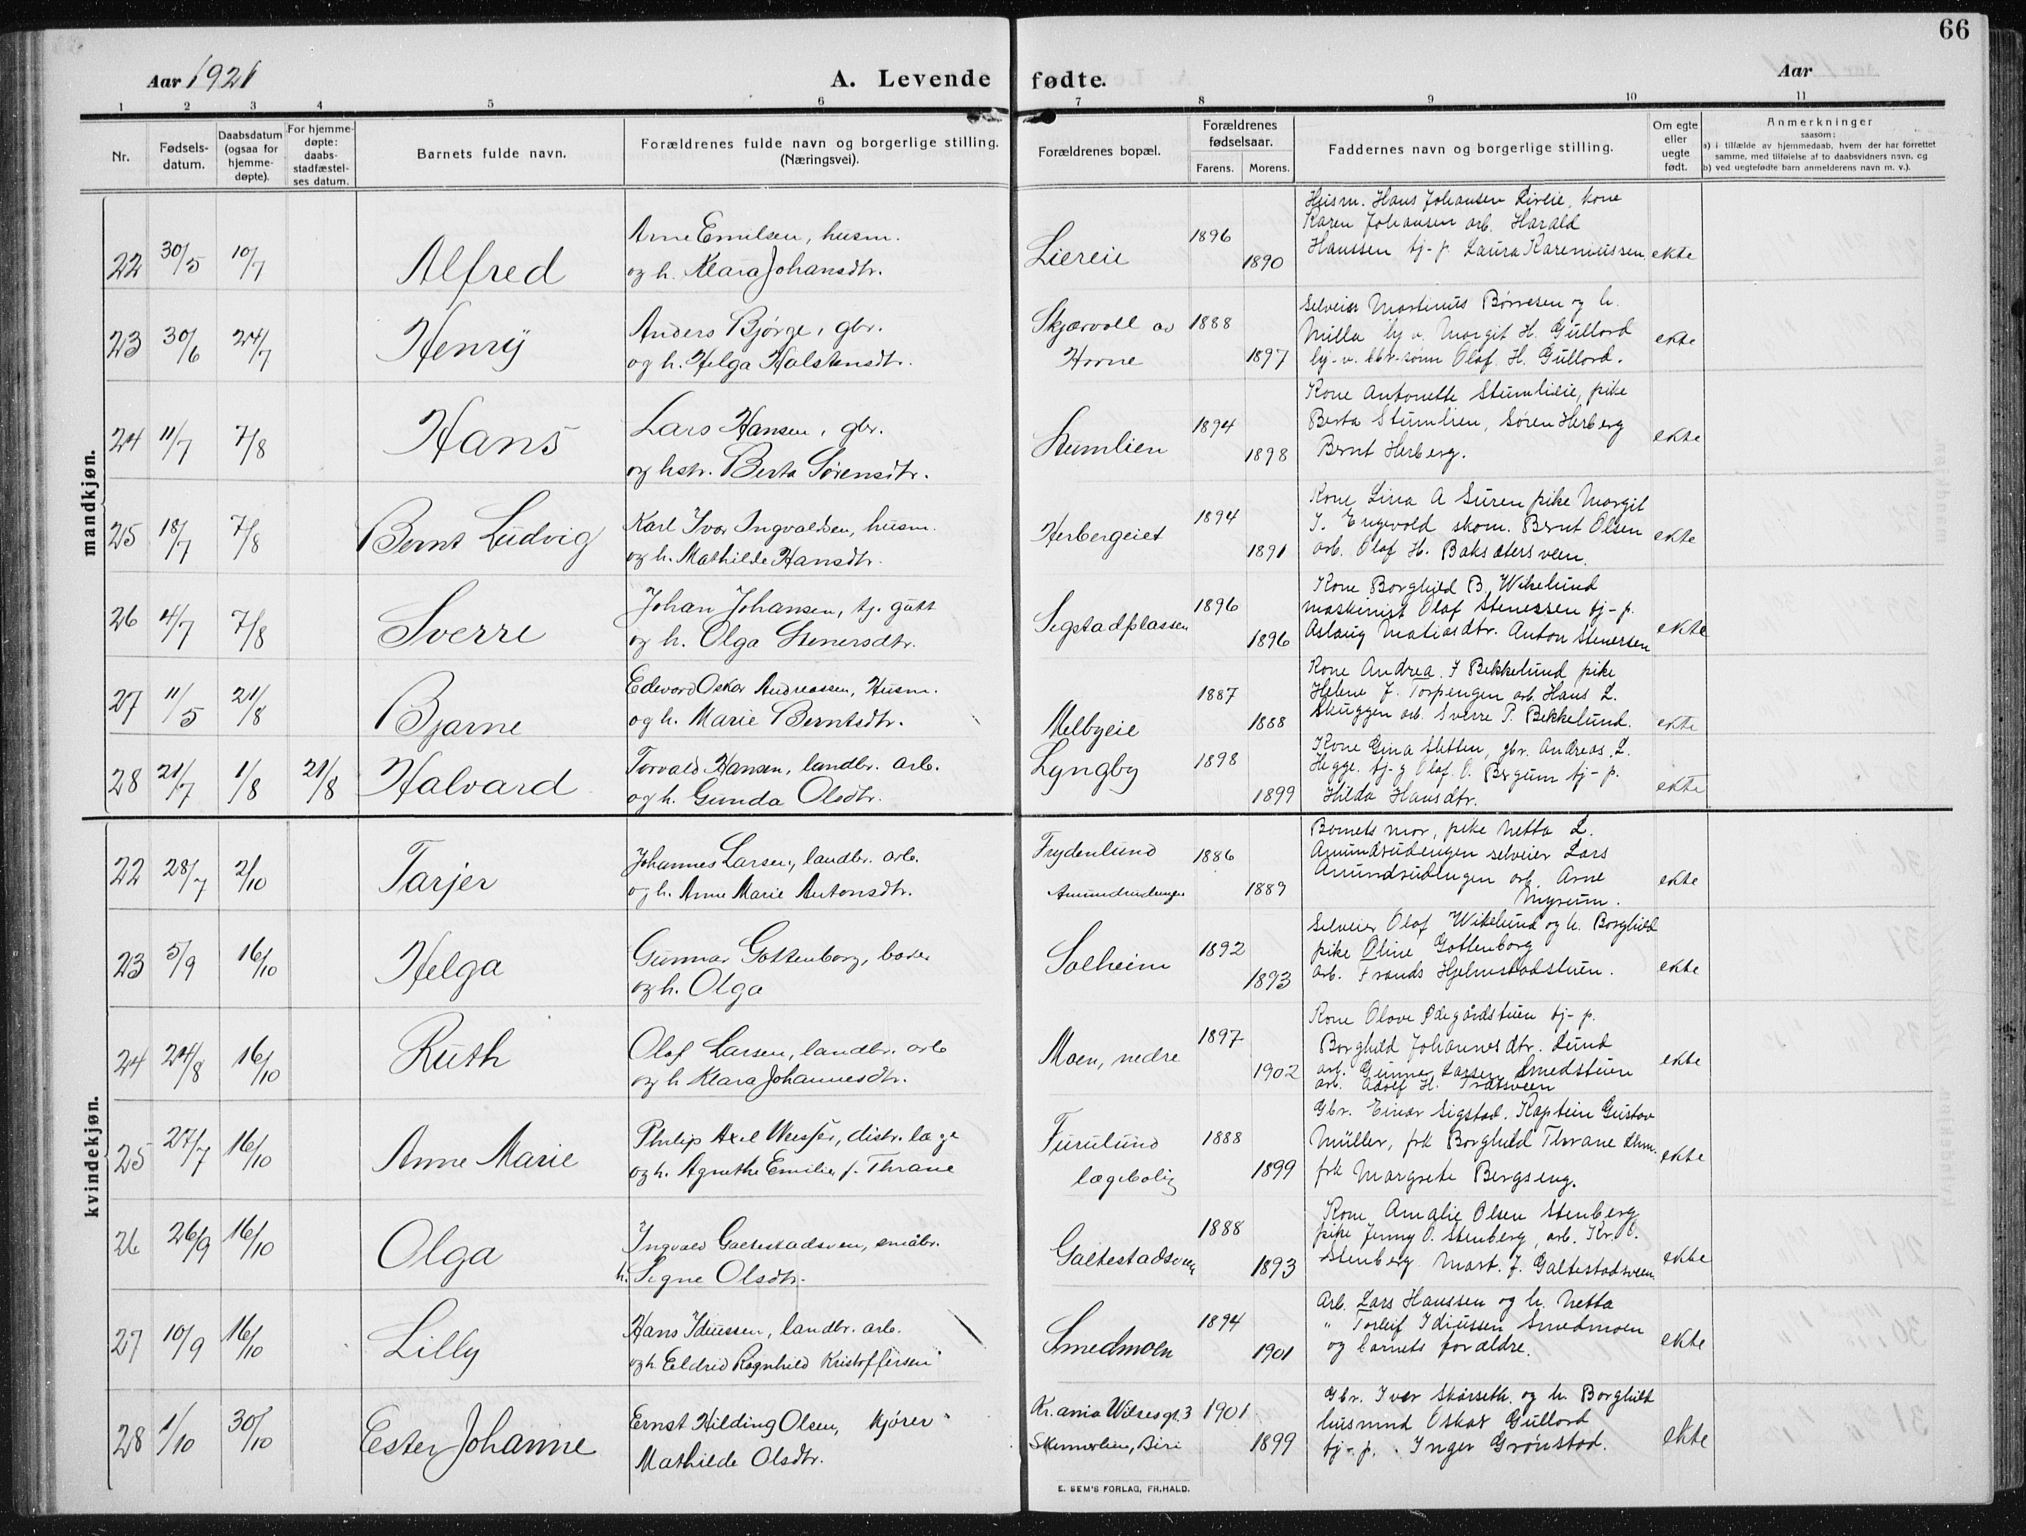 66
Aar 1921
A. Levende fødte.
Aar
1 2 3 4 5 6 7 8 9 10 11
Nr.
Fødsels-
datum.
Daabsdatum
(ogsaa for
hjemme-
døpte).
For hjemme-
døpte:
daabs-
stadfæstel-
ses datum.
Barnets fulde navn.
Forældrenes fulde navn og borgerlige stilling.
(Næringsvei).
Forældrenes bopæl.
Forældrenes
fødselsaar.
Farens. Morens.
Faddernes navn og borgerlige stilling.
Om egte
eller
uegte
født.
Anmerkninger
saasom:
a) i tilfælde av hjemmedaab, hvem der har forrettet
samme, med tilføielse af to daabsvidners navn, og
b) ved uegtefødte barn anmelderens navn m. v.).
mandkjøn.
22 30/5 10/7 Alfred
Arne Emilsen, husm.
og h. Klara Johansdtr.
Liereie 1896 1890
Husm. Hans Johansen kone
Karen Johansen arb. Harald
Hanssen tj-p Laura Kareniussen ekte
23 30/6 24/7 Henry
Anders Bjørge, gbr.
og h. Helga Halstensdtr.
Skjærvoll av
Horne 1888 1897
Selveier Martinus Børresen og h.
Milla Margit H. Gullord
Olaf H. Gullord. ekte
24 11/7 7/8 Hans
Lars Hansen, gbr.
og hstr. Berta Sørensdtr.
Stumlien 1894 1898
Kone Antonette Stumlieie, pike
Berta Stumlien, Søren Herberg
Bernt Herberg. ekte
25 18/7 7/8 Bernt Ludvig
Karl Ivar Ingvaldsen, husm.
og h. Mathilde Hansdtr.
Herbergeiet 1894 1891
Kone Lina A Suren pike Margit
I. Engevold skom. Bernt Olsen
arb. Olaf H. Baksætersveen. ekte
26 4/7 7/8 Sverre
Johan Johansen, tj. gutt
og h. Olga Stenersdtr.
Sigstadplassen 1896 1896
Kone Borghild B. Wikelund
maskinist Olaf Stenersen tj-p.
Aslaug Matiasdtr. Anton Stenersen ekte
27 11/5 21/8 Bjarne
Edevard Oskar Andreassen, Husm.
og h. Marie Berntsdtr.
Melbyeie 1887 1888
Kone Andrea I Bekkelund pike
Helene J. Torpengen arb. Hans L.
Skuggen arb. Sverre P. Bekkelund. ekte
28 21/7 1/8 21/8 Halvard
Torvald Hansen, landbr. arb.
og h. Gunda Olsdtr.
Lyngby 1898 1899
Kone Gina Sletten, gbr. Andreas L.
Hegge. tj-g Olaf O. Bergum tj-p.
Hilda Hansdtr. ekte
kvindekjøn.
22 28/7 2/10 Tarjer
Johannes Larsen, landbr. arb.
og h. Anne Marie Antonsdtr.
Frydenlund
Amundrudengen 1886 1889
Barnets mor, pike Netta L.
Amundrudengen selveier Lars
Amundrudengen arb. Arne
Myrum. ekte
23 5/9 16/10 Helga
Gunnar Gottenborg, baker
og h. Olga
Solheim 1892 1893
Selveier Olaf Wikelund og h. Borghild
pike Oline Gottenborg
arb. Frands Hjelmstadstuen. ekte
24 24/8 16/10 Ruth
Olaf Larsen, landbr. arb
og h Klara Johannesdtr.
Moen, nedre 1897 1902
Kone Olave Ødegårdstuen tj-p.
Borghild Johannesdtr. Lund
arb. Gunnar Larsen Smedstuen
arb. Adolf H. Trætsveen ekte
25 27/7 16/10 Anne Marie
Philip Axel Weisser, distr. læge
og h. Agnethe Emilie f. Thrane
Furulund
lægebolig 1888 1899
Gbr. Einar Sigstad. Kaptein Gustav
Müller, frk Borghild Thrane
frk Margrete Bergseng. ekte
26 26/9 16/10 Olga
Ingvald Galtestadsven, småbr.
h. Signe Olsdtr.
Galtestadsveen 1888 1893
Kone Amalie Olsen Stenberg
pike Jenny O. Stenberg, arb. Kr. O.
Stenberg Mart. J. Galtestadsveen ekte
27 10/9 16/10 Lilly
Hans Idiussen, landbr. arb.
og h Eldrid Ragnhild Kristoffersen
Smedmoen 1894 1901
Arb. Lars Hanssen og h. Netta
" Torleif Idiussen Smedmoen
og barnets forældre. ekte
28 1/10 30/10 Ester Johanne
Ernst Hilding Olsen, kjører
Mathilde Olsdtr.
Kr.ania Wilsesgt. 3
Skumerlien, Biri 1901 1899
Gbr. Iver Skårseth og h. Borghild
husmnd Oskar Gullord
tj-p. Inger Grønstad. ekte
E. SEM'S FORLAG, FR.HALD.